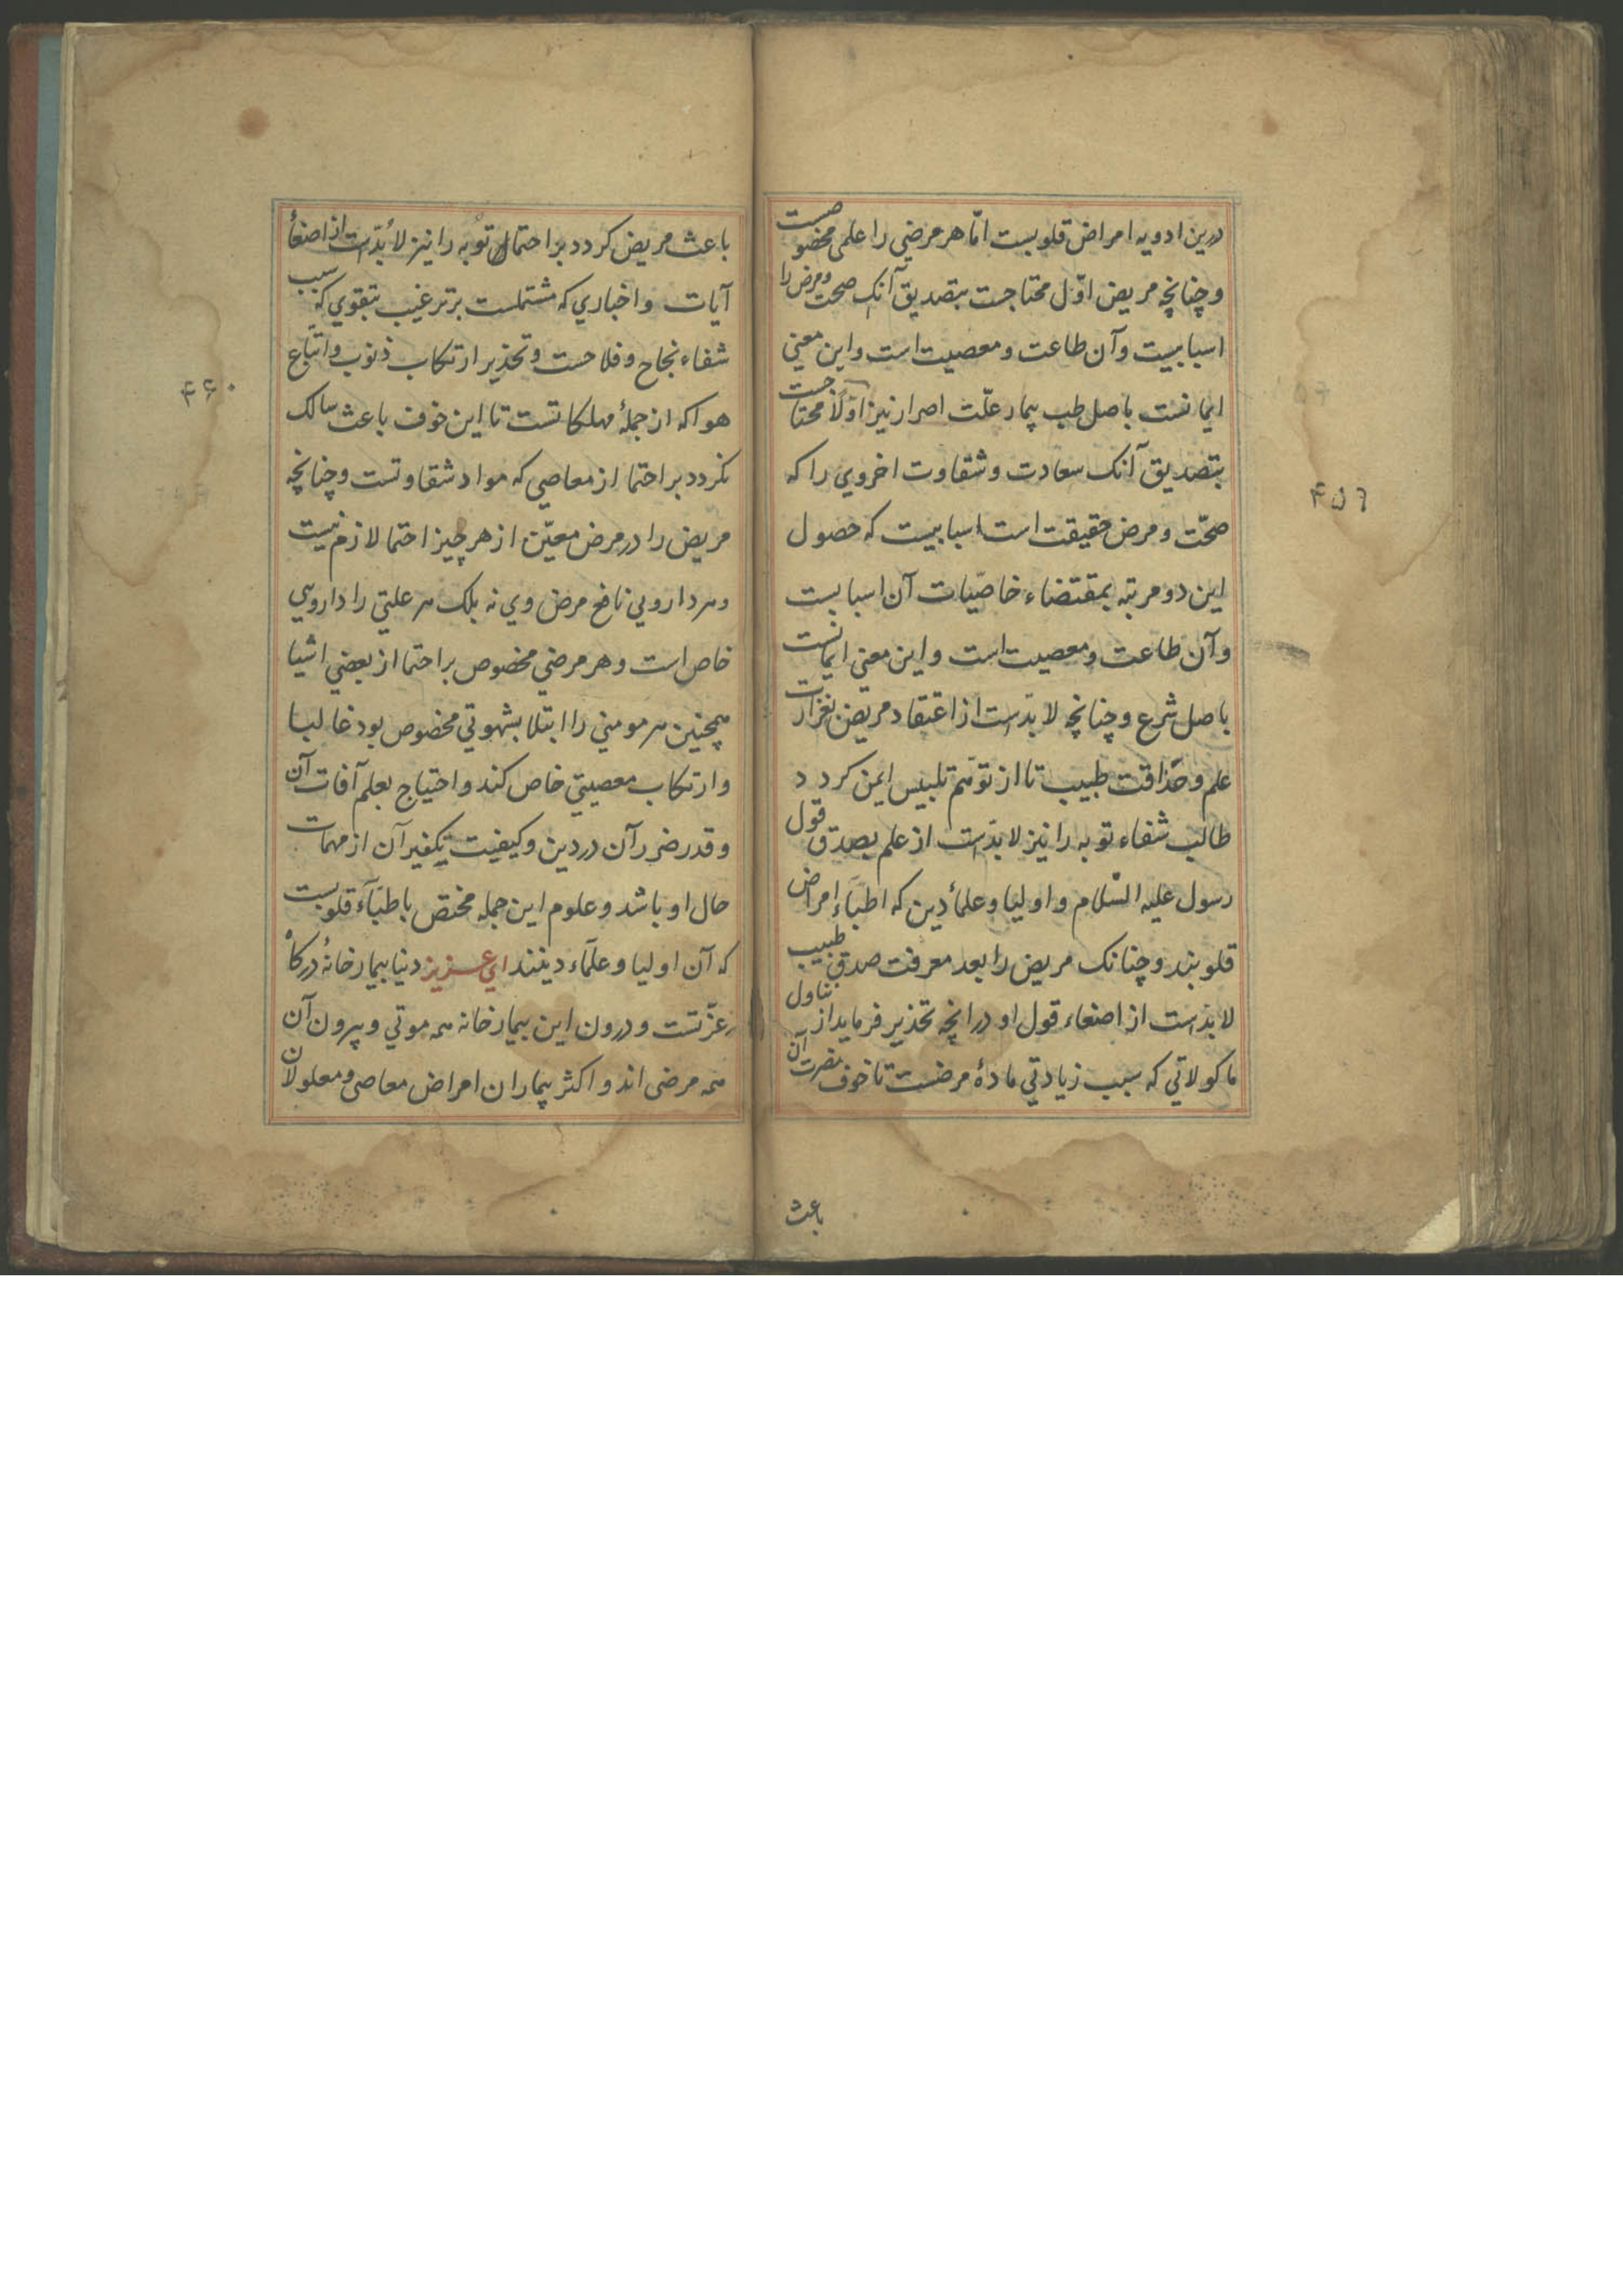 درین ادویه امراض قلوبست امّا هر مرضی را علمی مخصوصیست
و چنانچه مریض اوّل محتاجست بتصدیق آنک صحت و مرض را
اسبابیست و آن طاعت و معصیت است و این معنی
ایمانست باصل طب بیمار علّت اصرار نیز اوّلاً محتاجست
بتصدیق آنک سعادت و شقاوت اخروی را که
صحّت و مرض حقیقت است اسبابیست که حصول
این دو مرتبه بمقتضاء خاصّیات آن اسبابست
و آن طاعت و معصیت است و این معنی ایمانست
باصل شرع و چنانچه لا بدّست از اعتقاد مریض بغزارت
علم و حذاقت طبیب تا از توهّم تلبیس ایمن کردد
طالب شفاء توبه را نیز لا بدّست از علم بصدق قول
رسول علیه السّلام و اولیا و علمأ دین که اطبّاء امراض
قلوبند و چنانک مریض را بعد معرفت صدق طبیب
لا بدّست از اصغاء قول او در انچه تحذیر فرماید از تناول
ماکولاتی که سبب زیادتی مادهٔ مرضست تا خوف مضرت آن
باعث
۴۵۶
باعث مریض کردد بر احتما توبه را نیز لا بدّست از اصغأ
آیات و اخباری که مشتملست بر ترغیب بتقوی که سبب
شفاء نجاح و فلاحست و تحذیر ارتکاب ذنوب و اتباع
هوا که از جملهٔ مهلکاتست تا این خوف باعث سالک
کردد بر احتما از معاصی که مواد شقاوتست و چنانچه
مریض را در مرض معیّن از هر چیز احتما لازم نیست
و هر دارویی نافع مرض وی نه بلک هر علتی را داروی
خاص است و هر مرضی مخصوص بر احتما از بعضی اشیا
همچنین هر مومنی را ابتلا بشهوتی مخصوص بود غالبا
و ارتکاب معصیتی خاص کند و احتیاج بعلم آفات آن
و قدر ضرر آن در دین و کیفیت تکفیر آن از مهمات
حال او باشد و علوم این جمله مختص باطبّآء قلوبست
که آن اولیا و علمآء دینند ای عزیز دنیا بیمارخانهٔ درکاه
عزّتست و درون این بیمارخانه همه موتی و بیرون آن
همه مرضی اند و اکثر بیماران امراض معاصی و معلولان
۴۶۰